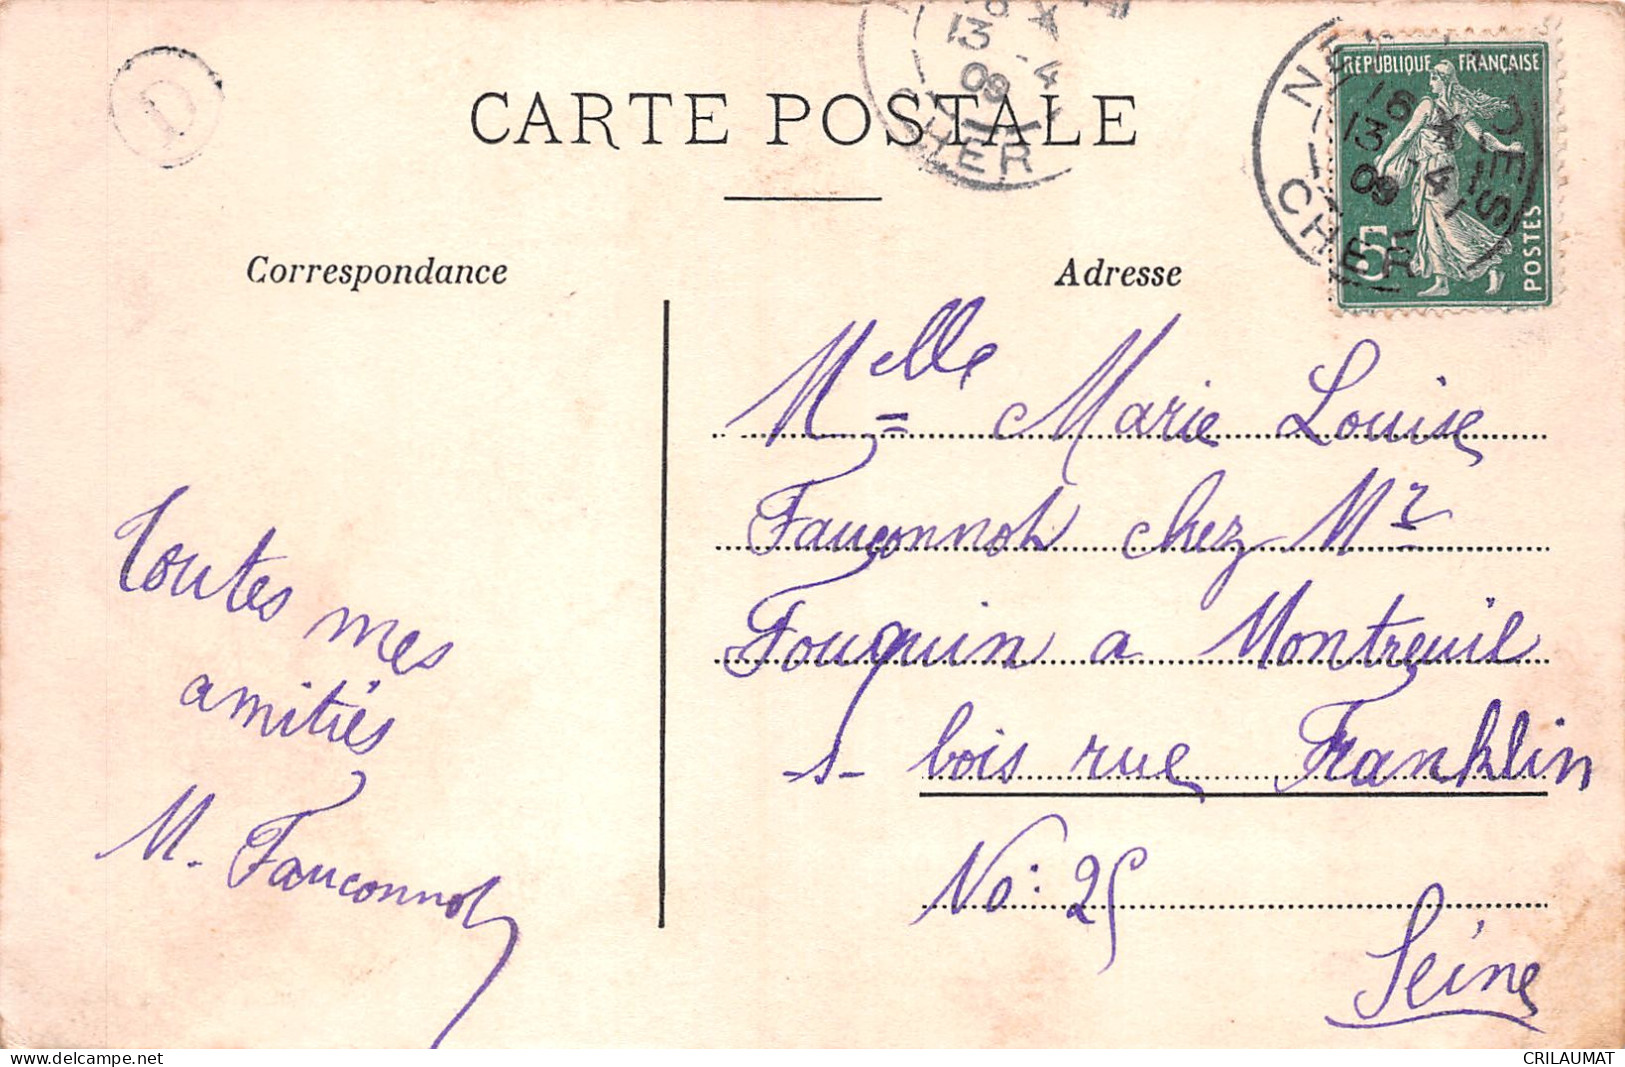 CARTE POSTALE
Correspondance
Adresse
D
13 -4
09
CHER
RÉPUBLIQUE FRANÇAISE
18
13 4
09
CHER
5
POSTES
Melle Marie Louise
Fauconnot chez Mr
Fouquin a Montreuil
-s- bois rue Franklin
No: 25
Seine
Toutes mes
amitiés
M. Fauconnot
www.delcampe.net
CRILAUMAT